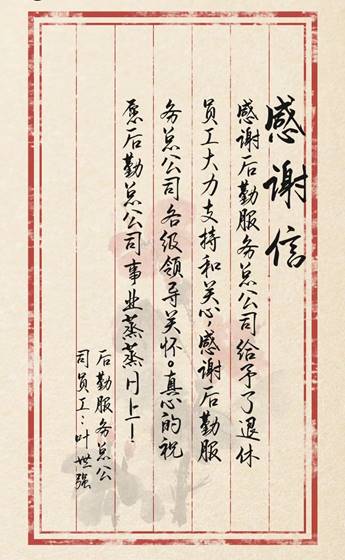 感谢信
感谢后勤服务总公司给予了退休
员工大力支持和关心，感谢后勤服
务总公司各级领导关怀。真心的祝
愿后勤总公司事业蒸蒸日上！
后勤服务总公
司员工：叶世强